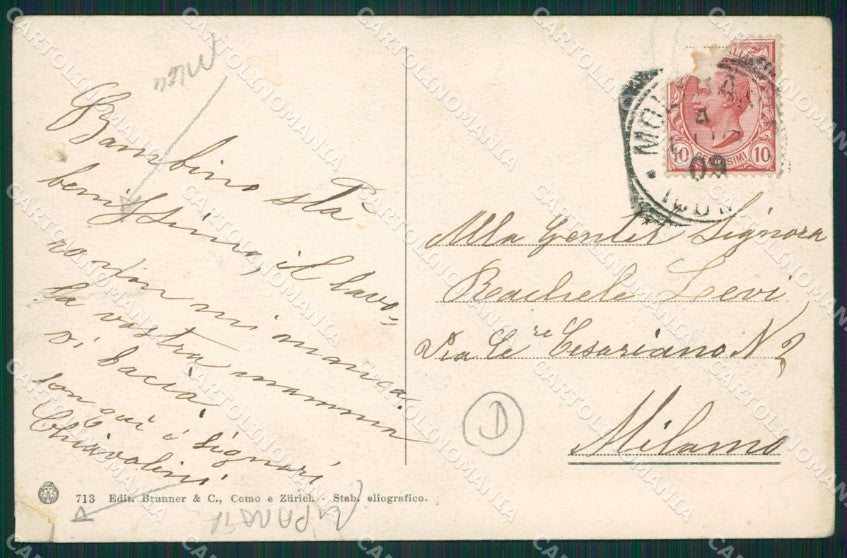 Bambino sta
benissimo, il lavo=
ro non mi manca
la vostra mamma
vi bacia
son qui i signori
Chiavolini
Alla Gentil Signora
Rachele Levi
Via Ce.re Cesariano N 2
Milano
D
10 CENTESIMI 10
09
713 Edit. Brunner & C., Como e Zürich - Stab. eliografico.
CARTOLINOMANIA